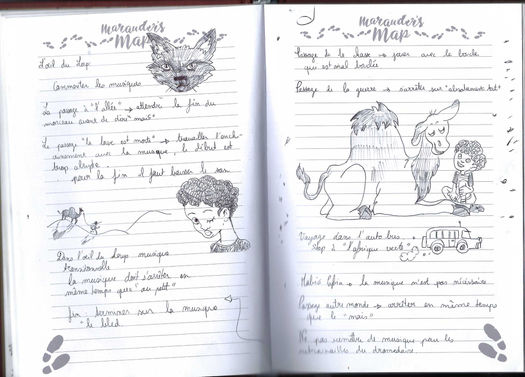 Marauder's
Map
L'œil du Loup
Commenter les musiques
Le passage à "l'allée" → attendre la fin du
morceau avant de dire "mais"
Le passage "la louve est morte" → travailler l'ench-
aînement avec la musique, le début est
trop abrupte.
pour la fin il faut baisser le son
Dans l'œil du Loup musique
transitionnelle
la musique doit s'arrêter en
même temps que "au petit"
fin : terminer sur la musique
"le bled
Marauder's
Map
Passage de la chasse → jouer avec le texte
qui est mal
Passage de la guerre → s'arrête sur "absolument tout"
Voyage dans l'autobus
stop à "l'afrique verte"
la musique n'est pas nécessaire
Passage autre monde → arrêter en même temps
que le "mais"
Ne pas remettre de musique pour les
retrouvailles du dromadaire